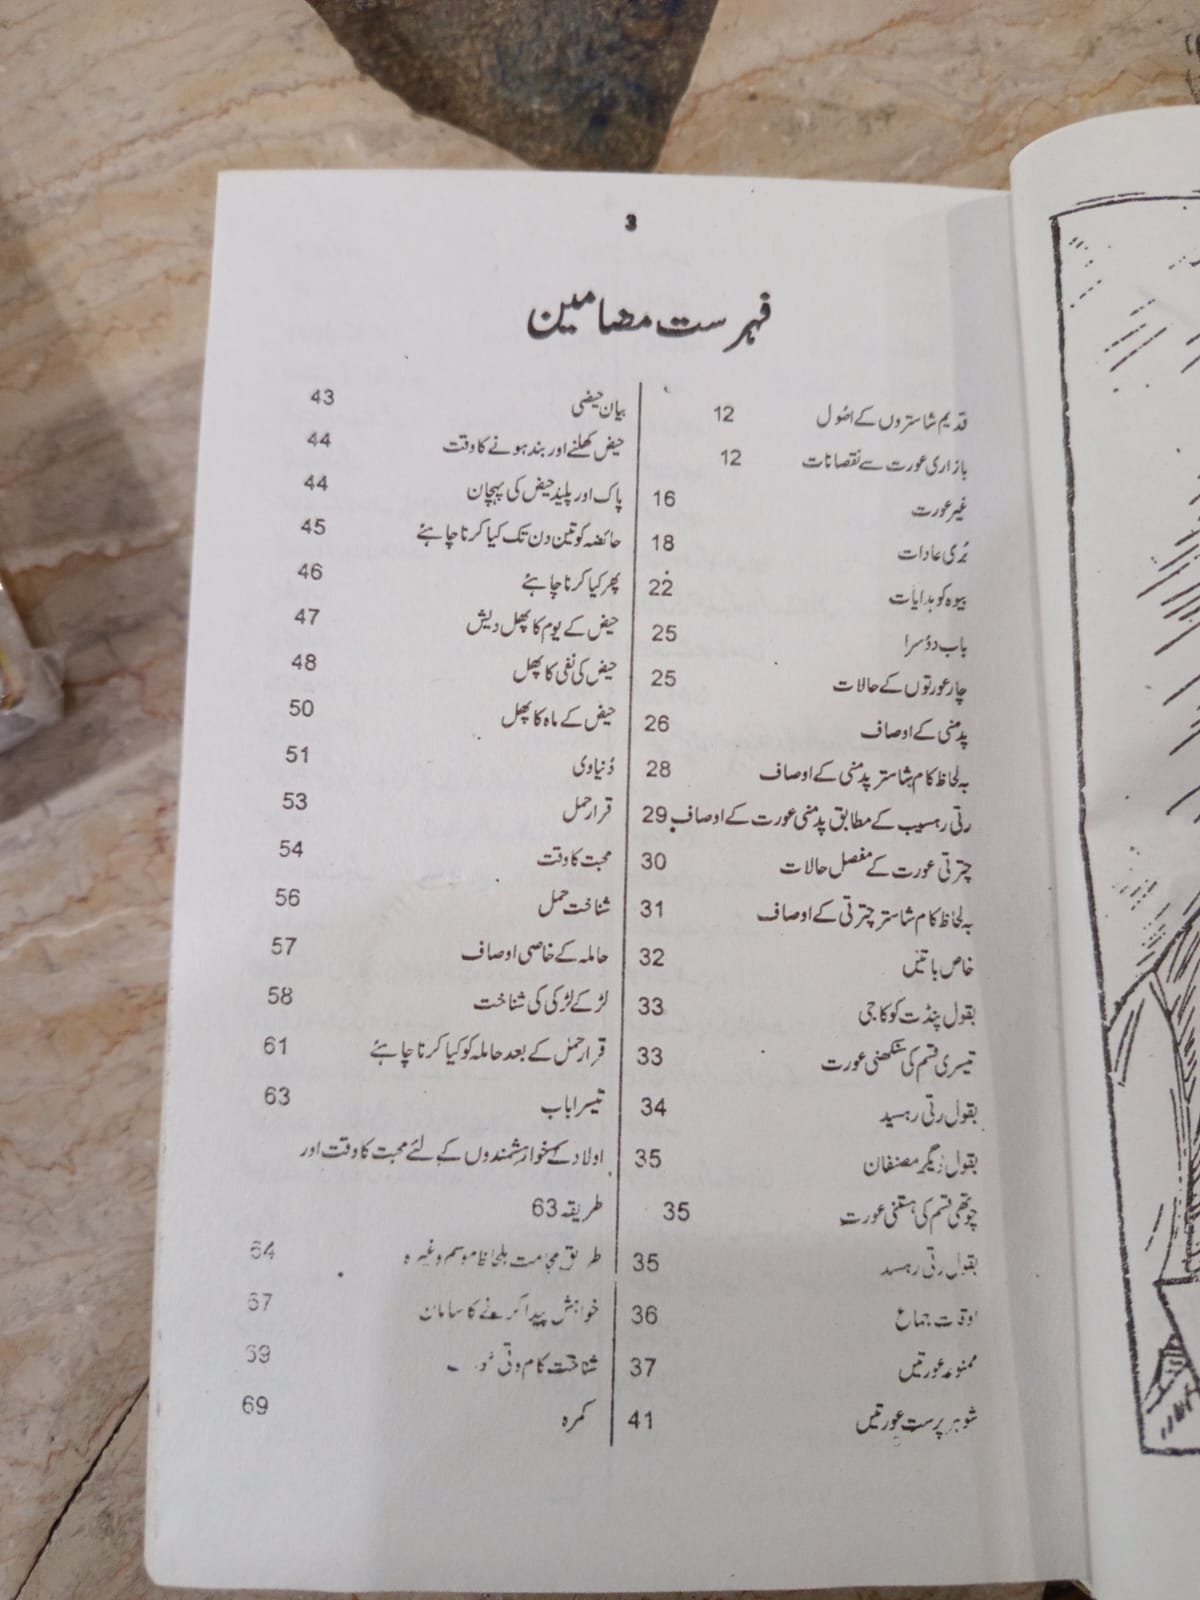 3
فہرست مضامین
قدیم شاستروں کے اصُول 12
بازاری عورت سے نقصانات 12
غیر عورت 16
بُری عادات 18
بیوہ کو ہدایات 22
باب دوُسرا 25
چار عورتوں کے حالات 25
پدمنی کے اوصاف 26
بہ لحاظ کام شاستر پدمنی کے اوصاف 28
رتی رہسیب کے مطابق پدمنی عورت کے اوصاف 29
چترنی عورت کے مفصل حالات 30
بہ لحاظ کام شاستر چترنی کے اوصاف 31
خاص باتیں 32
بقول پنڈت کوکا جی 33
تیسری قسم کی سنکھنی عورت 33
بقول رتی رہسید 34
بقول دیگر مصنفان 35
چوتھی قسم کی ہستنی عورت 35
بقول رتی رہسید 35
اوقات جماع 36
ممنوعہ عورتیں 37
شوہر پرست عورتیں 41
بیان حیضی 43
حیض کھلنے اور بند ہونے کا وقت 44
پاک اور پلید حیض کی پہچان 44
حائضہ کو تین دن تک کیا کرنا چاہئے 45
پھر کیا کرنا چاہئے 46
حیض کے یوم کا پھل دیش 47
حیض کی نفی کا پھل 48
حیض کے ماہ کا پھل 50
دُنیاوی 51
قرار حمل 53
محبت کا وقت 54
شناخت حمل 56
حاملہ کے خاصی اوصاف 57
لڑکے لڑکی کی شناخت 58
قرار حمل کے بعد حاملہ کو کیا کرنا چاہئے 61
تیسرا باب 63
اولاد کے خواہشمندوں کے لئے محبت کا وقت اور
طریقہ 63
طریق مجامت بلحاظ موسم وغیرہ 64
خواہش پیدا کرنے کا سامان 67
شناخت کام وتی
کمرہ 69